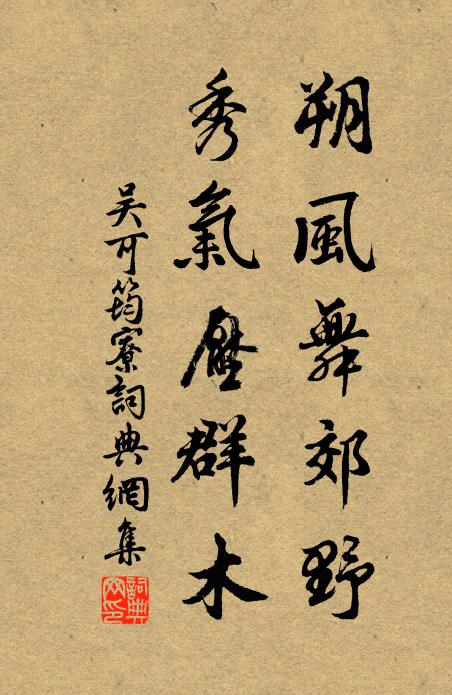 朔風舞郊野
秀氣壓群木
吳可筠寮詞典網集
詞典網印